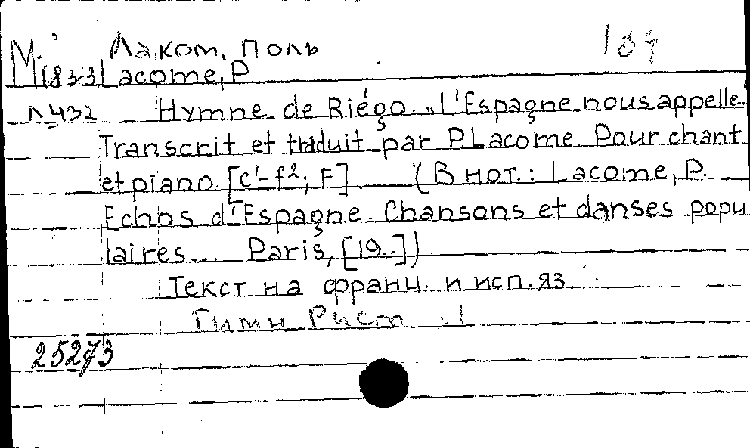 Лаком, Поль
М
Lacome, P.
л432 Hymne de Riégo. „L'Espagne nous appelle.
Transcrit et traduit par P. Lacome. Pour chant
et piano. [c¹-f²; F] (В нот.: Lacome, P.
Echos d'Espagne. Chansons et danses popu
laires... Paris, [19..])
Текст на франц. и исп. яз.
Гимн
25273